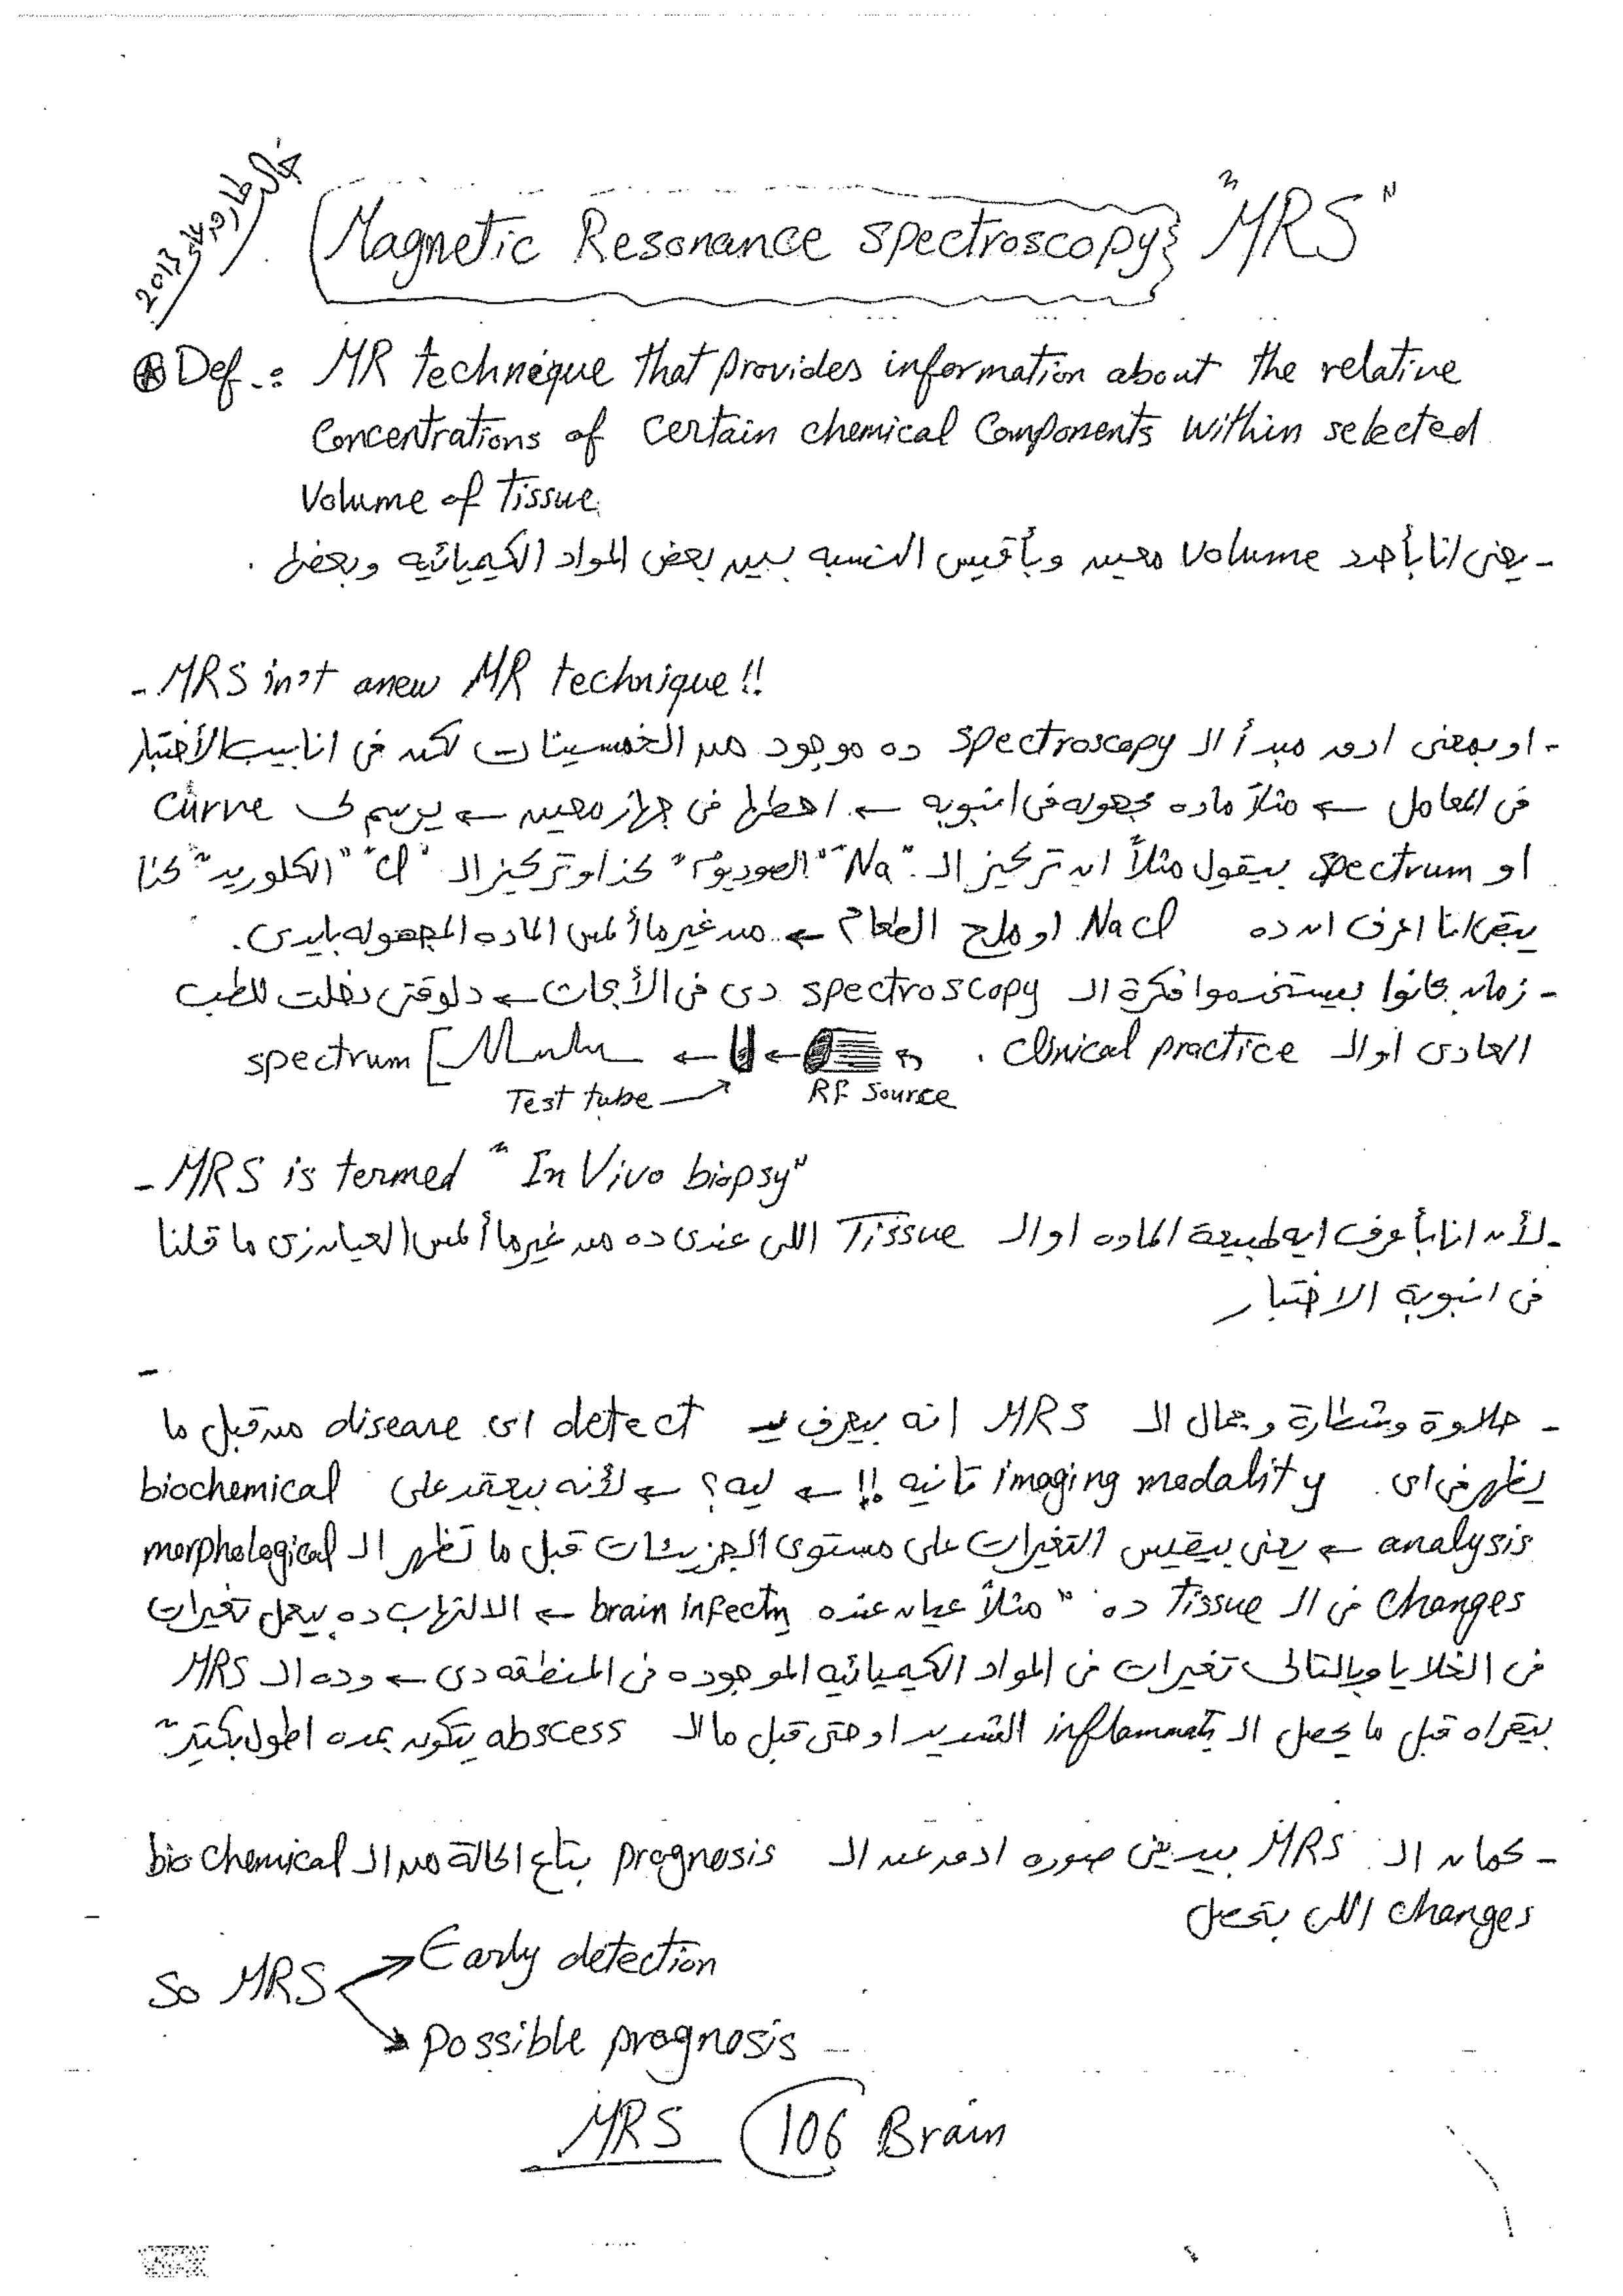 Magnetic Resonance spectroscopy "MRS"
2013
Def.: MR technique that provides information about the relative
Concentrations of certain chemical Components within selected
Volume of Tissue.
- يعنى انا بأخد volume معين وبأقيس النسبه بين بعض المواد الكيميائيه وبعضها .
- MRS in't anew MR technique!!
- او بمعنى ادق مبدأ الـ spectroscopy ده موجود من الخمسينات لكن فى انابيب الأختبار
فى المعامل ← مثلاً ماده مجهوله فى انبوبه ← احطها فى جهاز معين ← يرسم لى curve
او spectrum بيقول مثلاً ان تركيز الـ "Na" "الصوديوم" كذا وتركيز الـ "Cl" "الكلوريد" كذا
يبقى انا اعرف ان ده NaCl او ملح الطعام ← من غير ما ألمس الماده المجهوله بايدى .
- زمان كانوا بيستخدموا فكرة الـ spectroscopy دى فى الأبحاث ← دلوقتى دخلت للطب
العادى او الـ clinical practice .
spectrum ← ←
Test tube → RF source
- MRS is termed "In Vivo biopsy"
- لأن انا بأعرف ايه طبيعة الماده او الـ Tissue اللى عندى ده من غير ما ألمس العيان زى ما قلنا
فى انبوبة الاختبار
-
- حلاوة وشطارة وجمال الـ MRS انه بيعرف يـ detect اى disease من قبل ما
يظهر فى اى imaging modality تانيه !! ← ليه؟ ← لأنه بيعتمد على biochemical
analysis ← يعنى بيقيس التغيرات على مستوى الجزيئات قبل ما تظهر الـ morphological
changes فى الـ Tissue ده "مثلاً عيان عنده brain infectn ← الالتهاب ده بيعمل تغيرات
فى الخلايا وبالتالى تغيرات فى المواد الكيميائيه الموجوده فى المنطقه دى ← وده الـ MRS
بيقراه قبل ما يحصل الـ inflammatn الشديد او حتى قبل ما الـ abscess يتكون بمده اطول بكتير"
- كمان الـ MRS بيدينى صوره ادق عن الـ prognosis بتاع الحالة من الـ biochemical
changes اللى بتحصل
So MRS → Early detection
→ possible prognosis
MRS 106 Brain